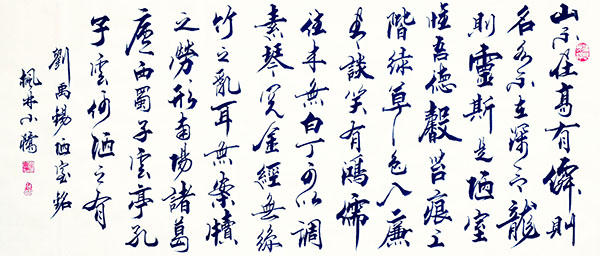 山不在高有僊則
名水不在深有龍
則靈斯是陋室
惟吾德馨苔痕上
階綠草色入簾
青談笑有鴻儒
往來無白丁可以調
素琴閱金經無絲
竹之亂耳無案牘
之勞形南陽諸葛
廬西蜀子雲亭孔
子雲何陋之有
劉禹錫陋室銘
楓林小